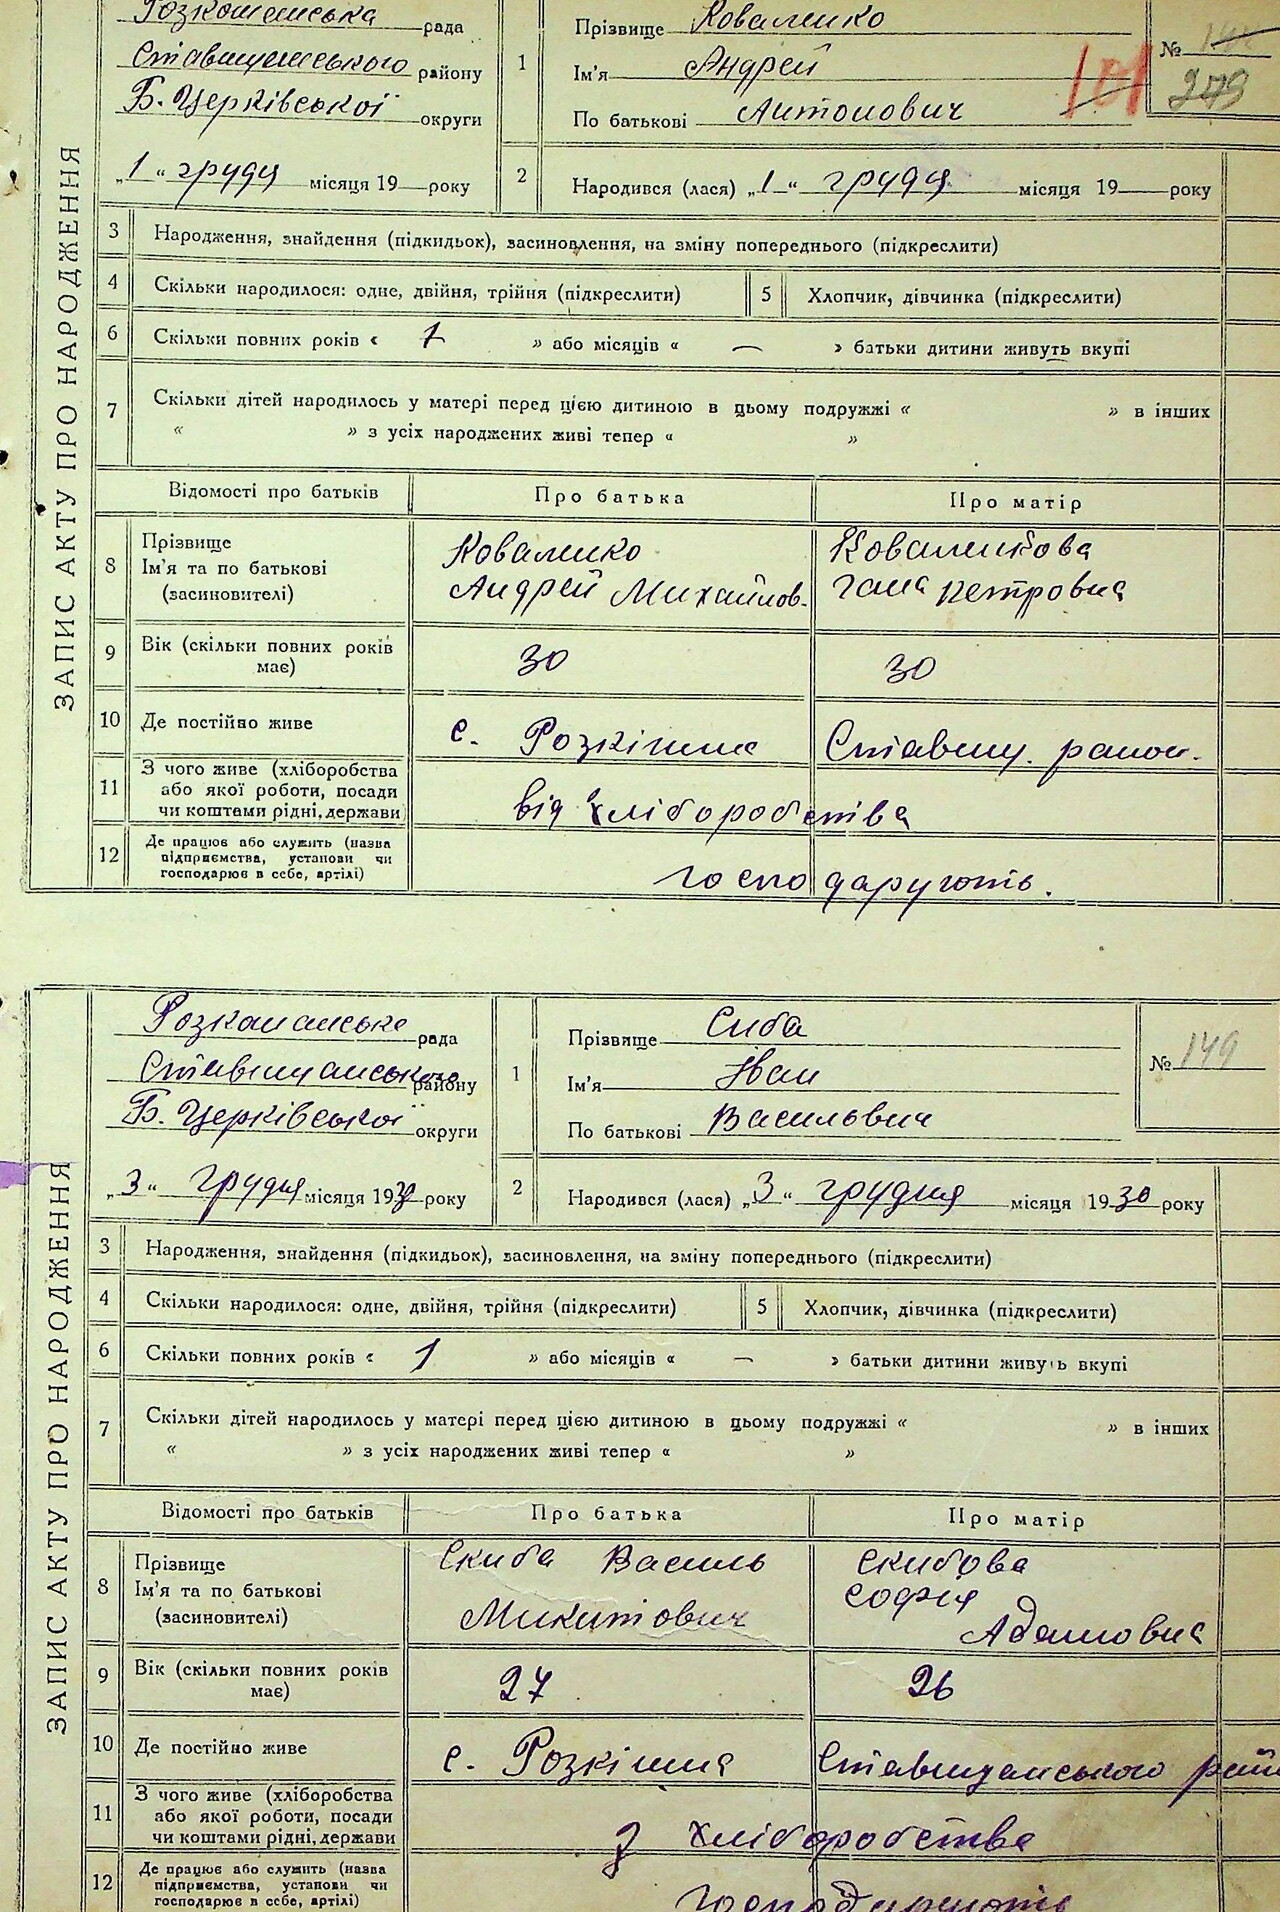 ЗАПИС АКТУ ПРО НАРОДЖЕННЯ
Розкошанська рада
Ставищенського району
Б. Церківської округи
„1“ грудя місяця 19 року
1 Прізвище Коваленко
Ім'я Андрей
По батькові Антонович
101
№
2 Народився (лася) „1“ грудя місяця 19 року
3 Народження, знайдення (підкидьок), засиновлення, на зміну попереднього (підкреслити)
4 Скільки народилося: одне, двійня, трійня (підкреслити) 5 Хлопчик, дівчинка (підкреслити)
6 Скільки повних років « 1 » або місяців « — » батьки дитини живуть вкупі
7 Скільки дітей народилось у матері перед цією дитиною в цьому подружжі « » в інших
« » з усіх народжених живі тепер « »
Відомості про батьків Про батька Про матір
8 Прізвище Ім'я та по батькові (засиновителі)
Коваленко Андрей Михайлов.
Коваленкова Гана Петровна
9 Вік (скільки повних років має) 30 30
10 Де постійно живе с. Розкішна Ставищ. район.
11 З чого живе (хліборобства або якої роботи, посади чи коштами рідні, держави) від хліборобства
12 Де працює або служить (назва підприємства, установи чи господарює в себе, артілі) господарують.
ЗАПИС АКТУ ПРО НАРОДЖЕННЯ
Розкошанське рада
Ставищанського району
Б. Церківської округи
„3“ грудня місяця 1930 року
1 Прізвище Скиба
Ім'я Іван
По батькові Васильвич
№ 149
2 Народився (лася) „3“ грудня місяця 1930 року
3 Народження, знайдення (підкидьок), засиновлення, на зміну попереднього (підкреслити)
4 Скільки народилося: одне, двійня, трійня (підкреслити) 5 Хлопчик, дівчинка (підкреслити)
6 Скільки повних років « 1 » або місяців « — » батьки дитини живуть вкупі
7 Скільки дітей народилось у матері перед цією дитиною в цьому подружжі « » в інших
« » з усіх народжених живі тепер « »
Відомості про батьків Про батька Про матір
8 Прізвище Ім'я та по батькові (засиновителі)
Скиба Василь Микитович
Скибова Софія Адамовна
9 Вік (скільки повних років має) 27 26
10 Де постійно живе с. Розкішна Ставищанського рай
11 З чого живе (хліборобства або якої роботи, посади чи коштами рідні, держави з хліборобства
12 Де працює або служить (назва підприємства, установи чи господарює в себе, артілі) господарують